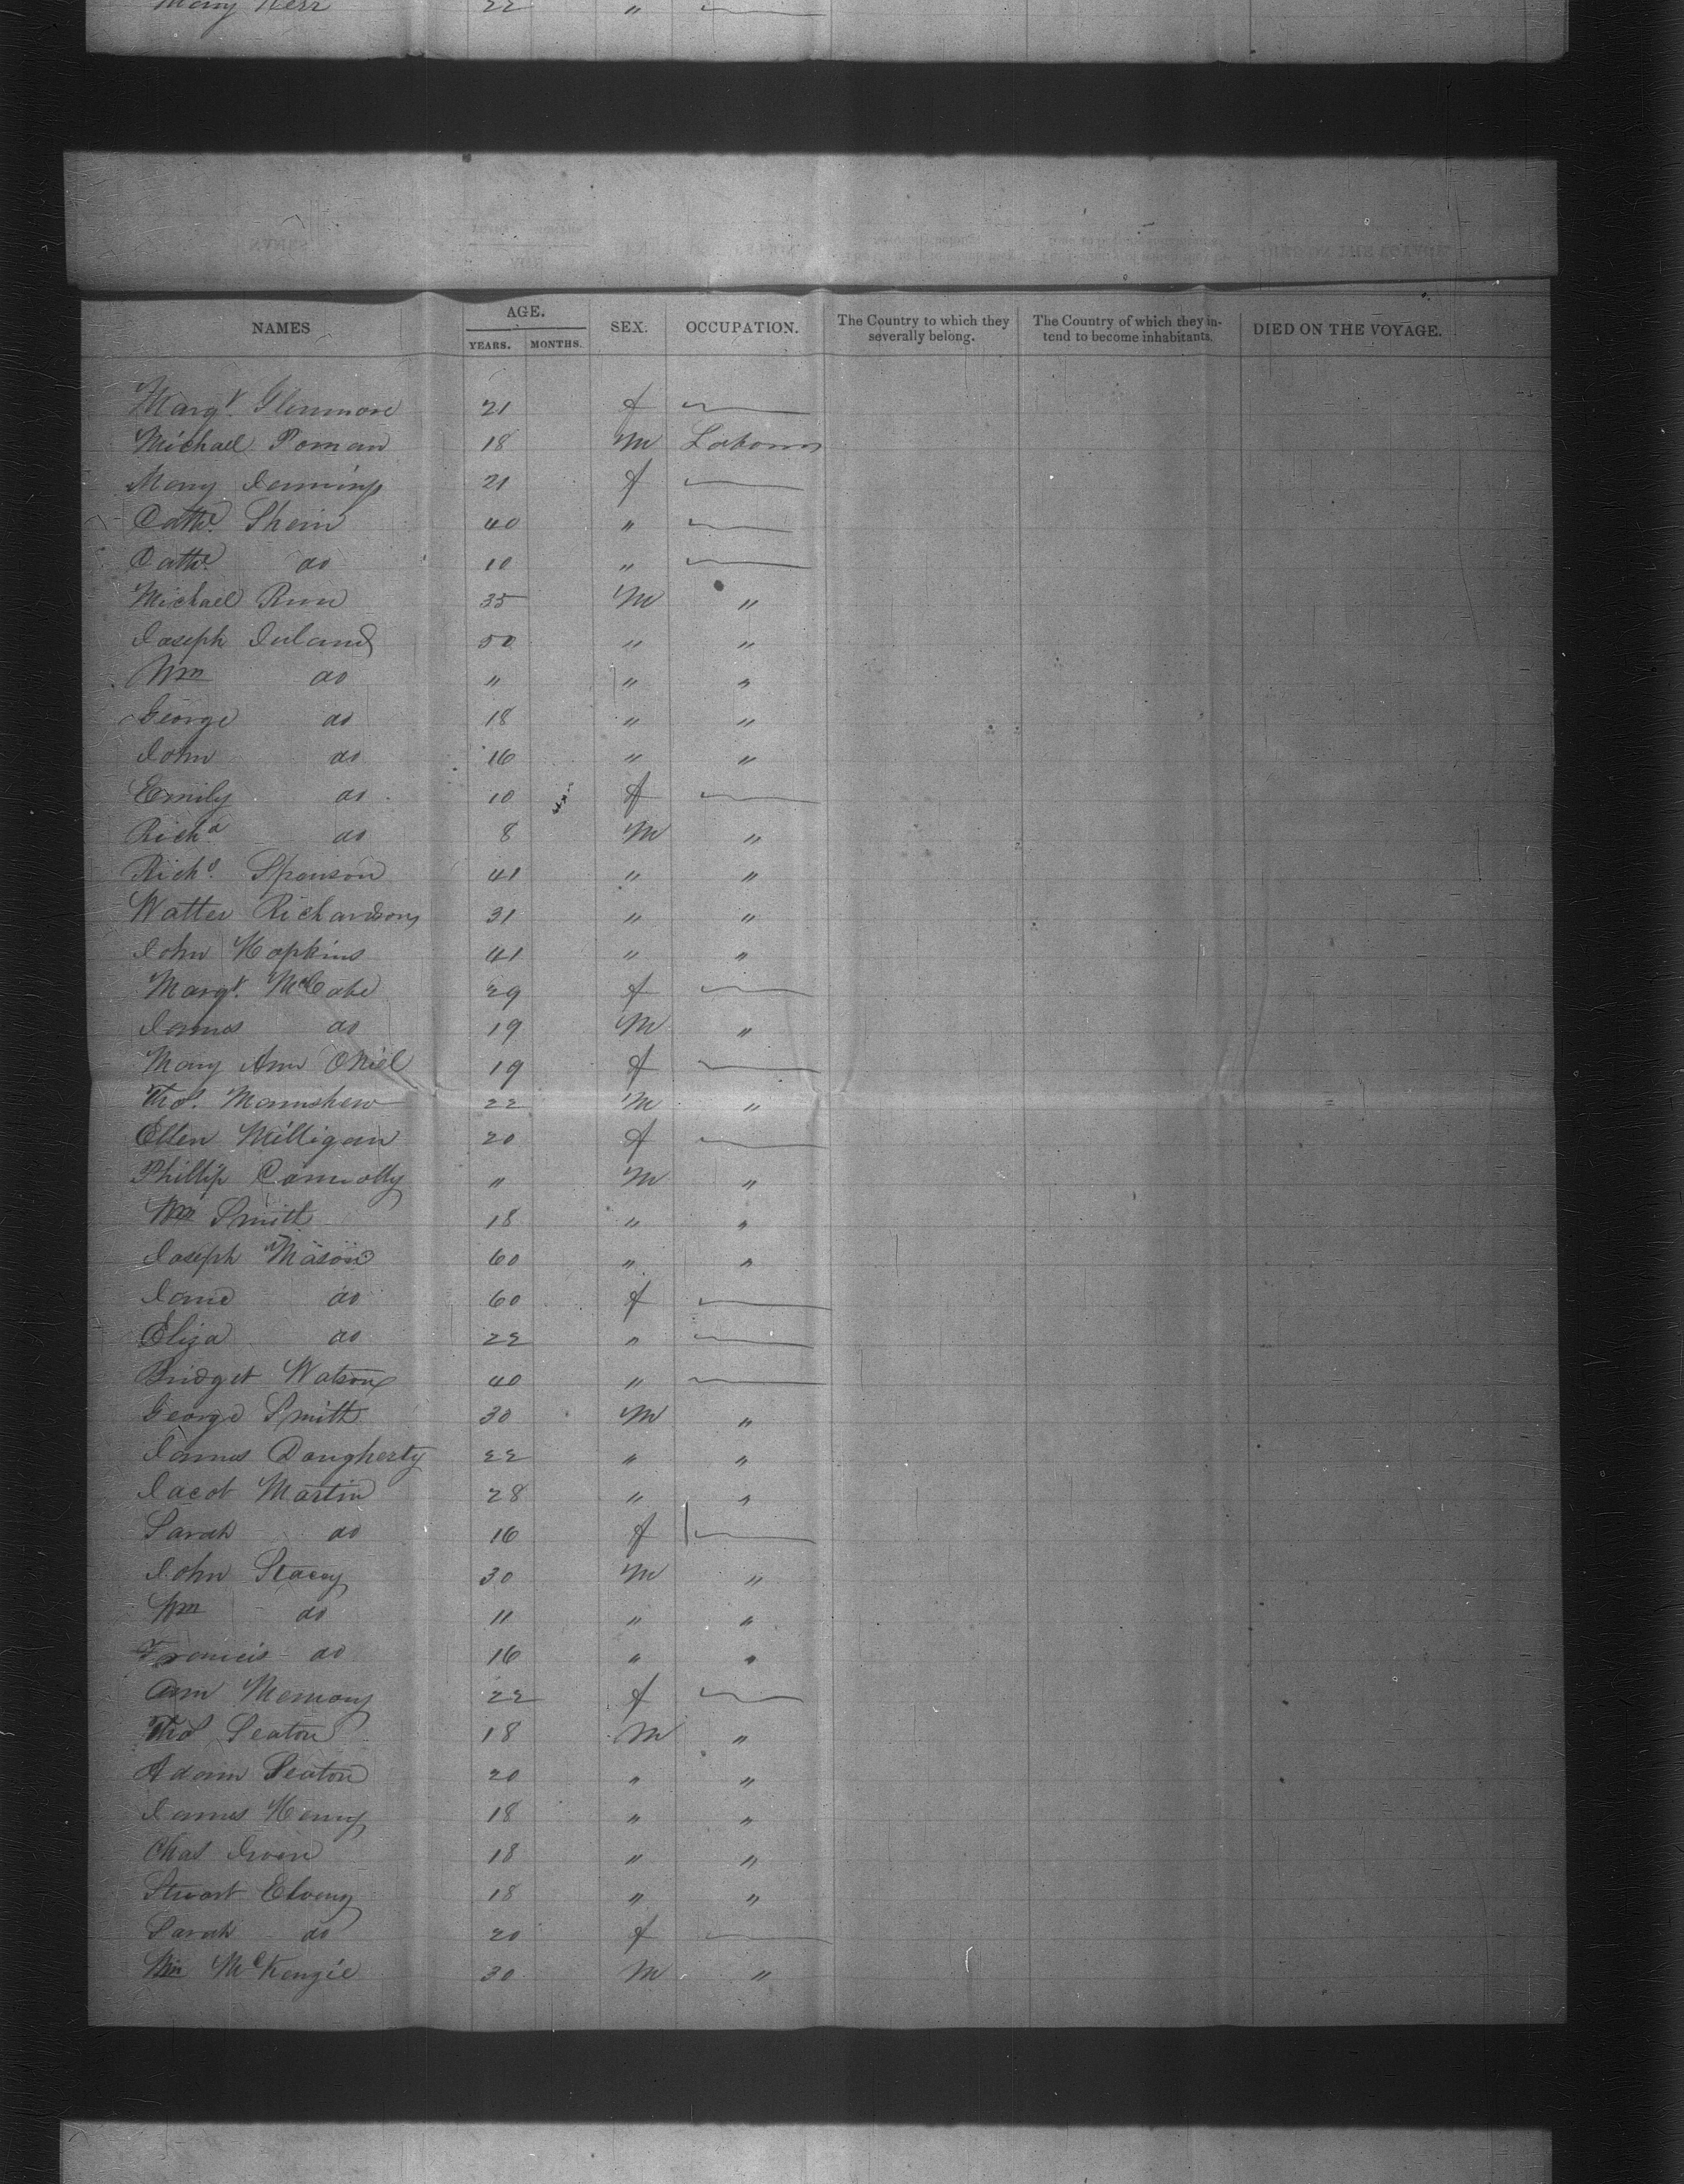 Mary Kerr 22 " —
NAMES AGE. YEARS. MONTHS. SEX. OCCUPATION. The Country to which they severally belong. The Country of which they intend to become inhabitants. DIED ON THE VOYAGE.
Margt. Glenmore 21 f —
Michael Poman 18 M Labourer
Mary Jennings 21 f —
Cathe. Shein 40 " —
Cathe. do 10 " —
Michael 35 M "
Joseph 50 " "
Wm do " " "
George do 18 " "
John do 16 " "
Emily do 10 f —
Richd do 8 M "
Richd. Spenson 41 " "
Walter Richardson 31 " "
John Hopkins 41 " "
Margt. McCabe 29 f —
James do 19 M "
Mary Ann ONiel 19 f —
Thos. 22 M "
Ellen Milligan 20 f —
Phillip Connolly " M "
Wm Smith 18 " "
Joseph Mason 60 " "
Jane do 60 f —
Eliza do 22 " —
Bridget Watson 40 " —
George Smith 30 M "
James Dougherty 22 " "
Jacob Martin 28 " "
Sarah do 16 f —
John Stacey 30 M "
Wm do 11 " "
Francis do 16 " "
Ann 22 f —
Thos Seaton 18 M "
Adam Seaton 20 " "
James Henry 18 " "
Chas Irvin 18 " "
Stuart 18 " "
Sarah do 20 f —
Wm McKenzie 30 M "